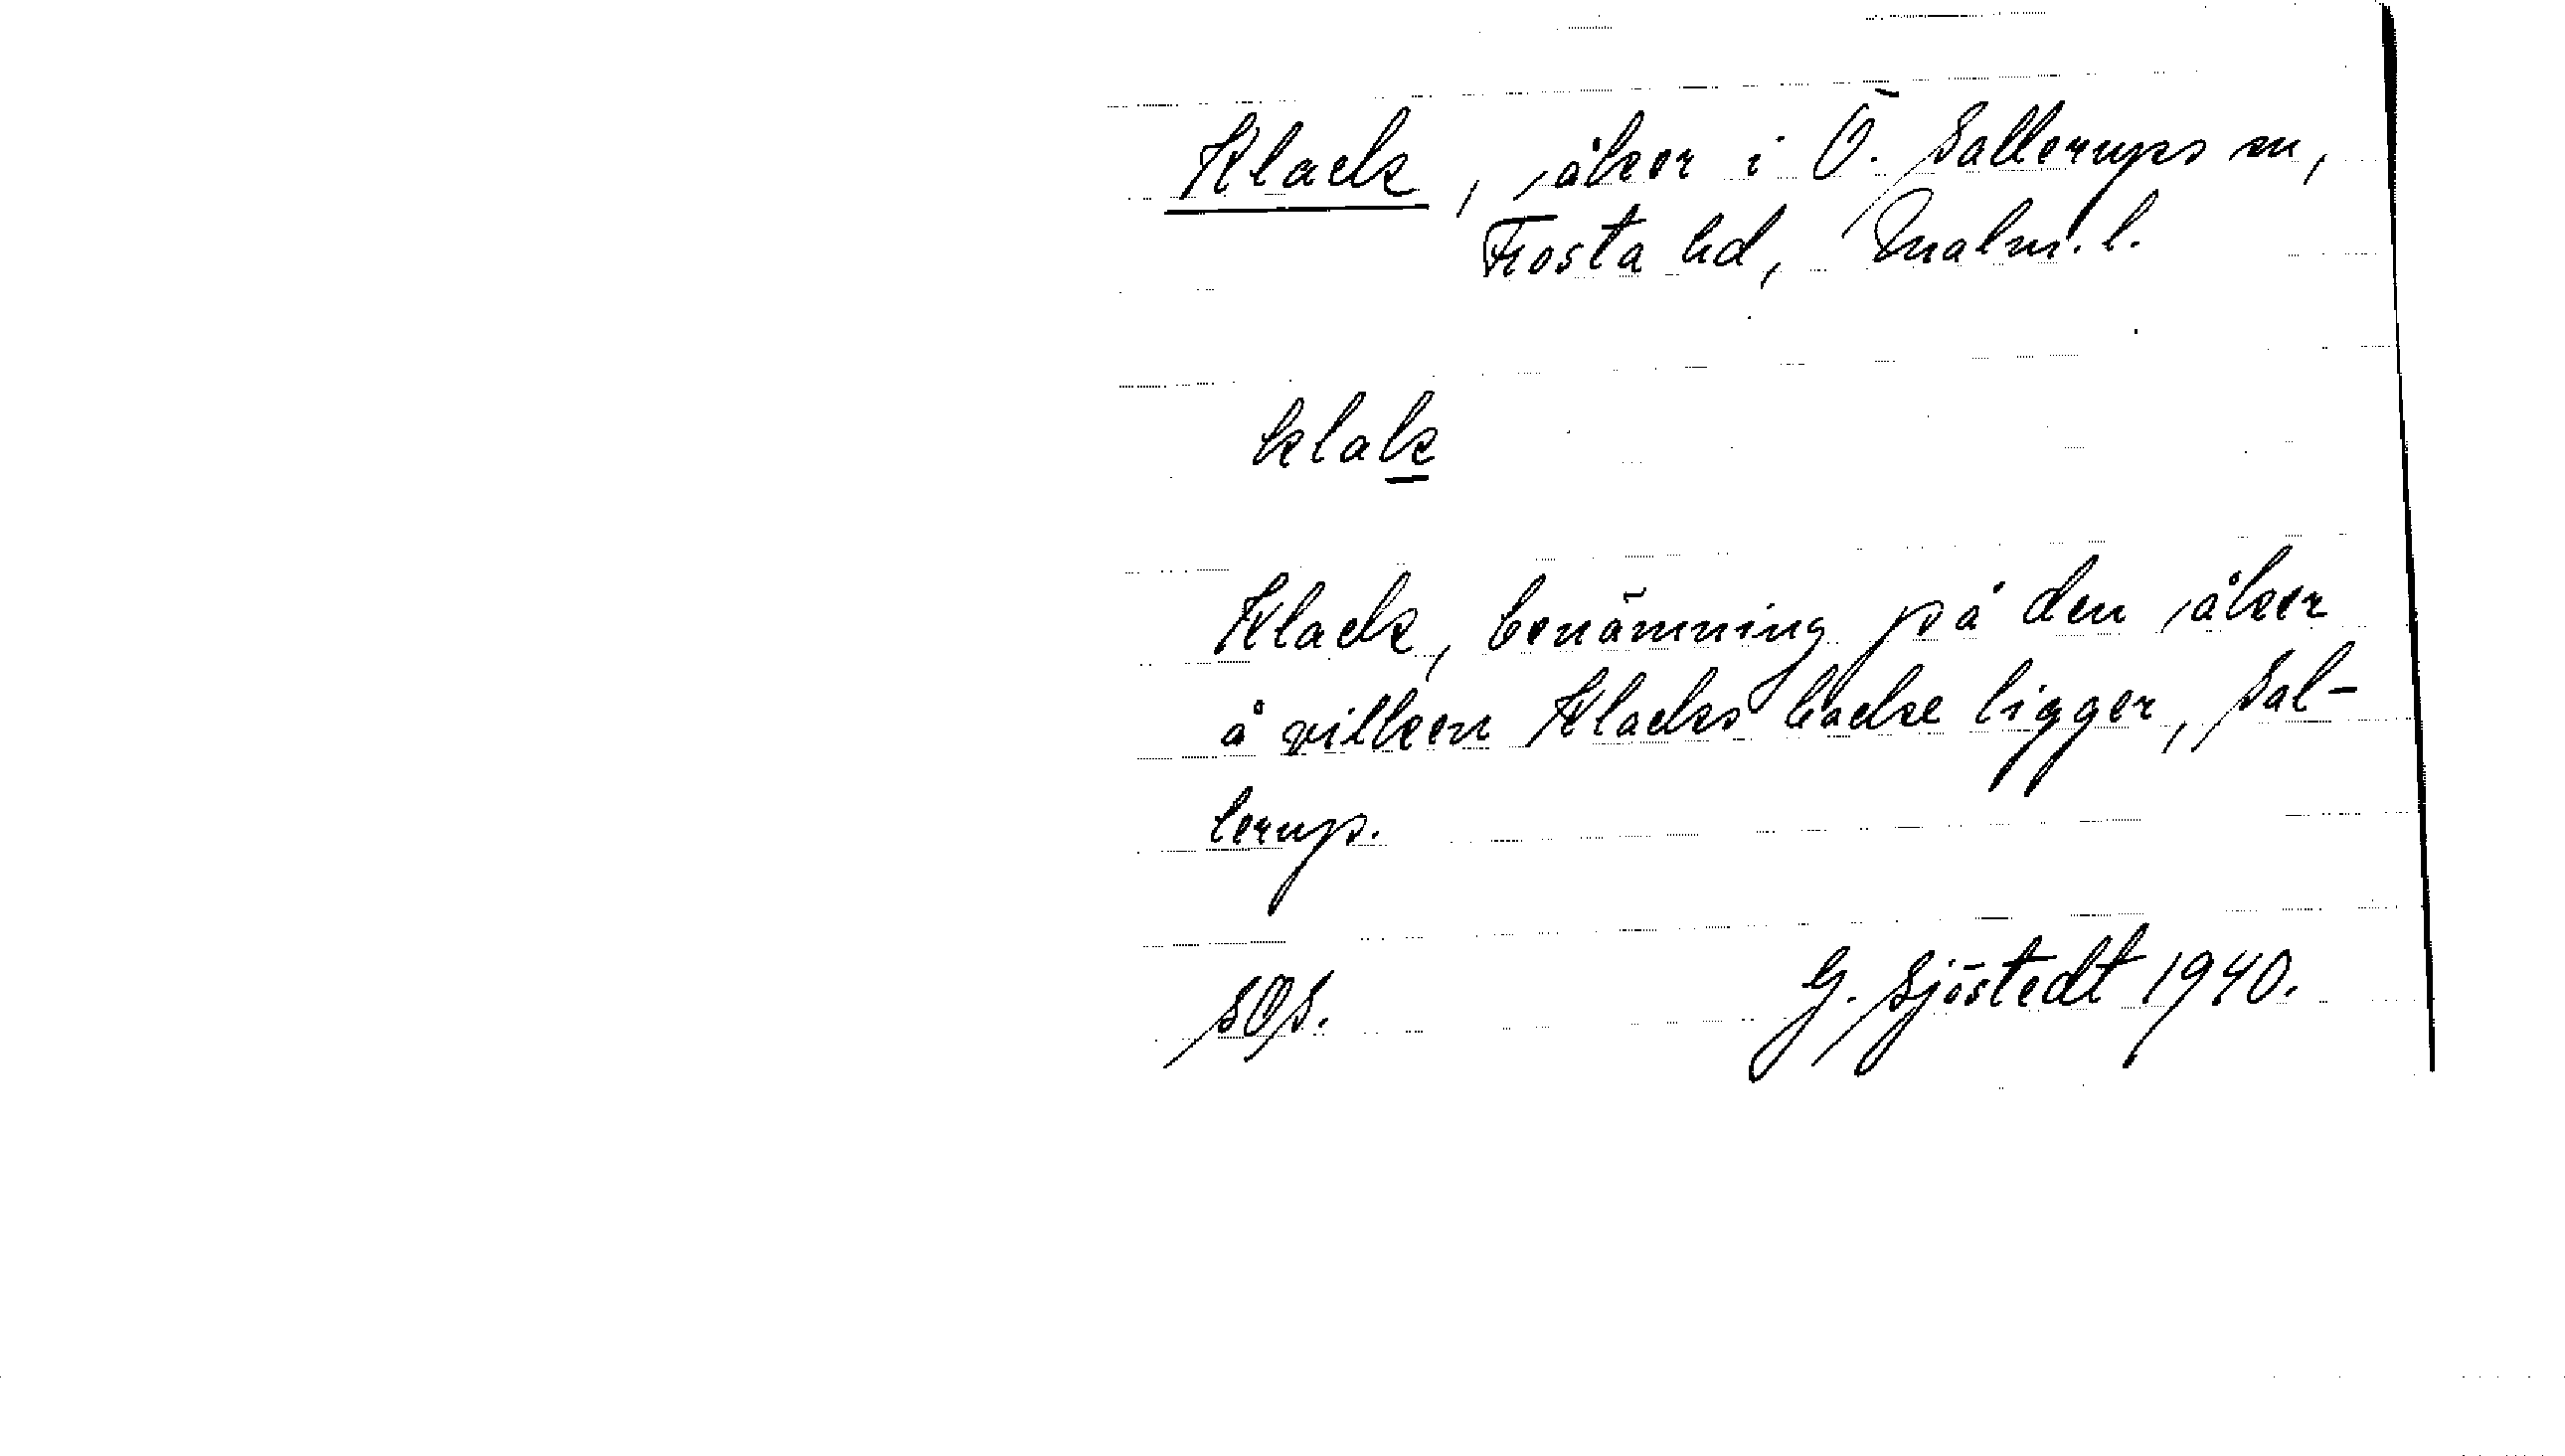 Klack, åker i Ö. Sallerups sn,
Frosta hd, Malm. l.
klak
Klack, benämning på den åker
å vilken Klacks backe ligger, Sal-
lerup.
SOS. G. Sjöstedt 1940.